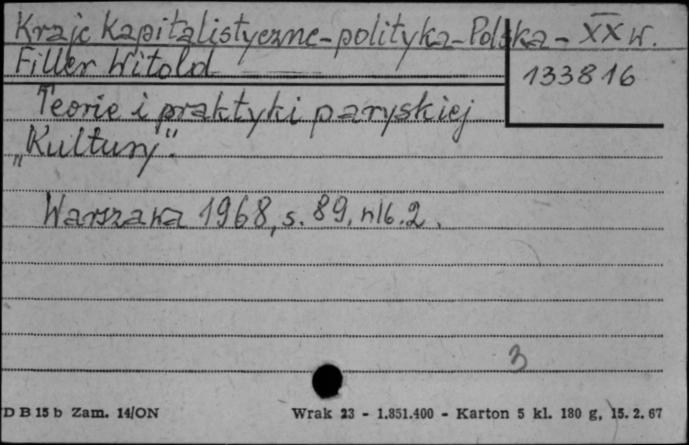 Kraje kapitalistyczne - polityka - Polska - XX w.
Filler Witold
133816
Teorie i praktyki paryskiej
„Kultury".
Warszawa 1968, s. 89, nlb. 2.
3
D B 15 b Zam. 14/ON Wrak 23 - 1.851.400 - Karton 5 kl. 180 g, 15. 2. 67